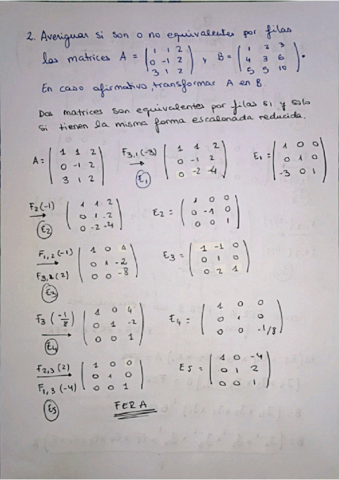 2. Averiguar si son o no equivalentes por filas
las matrices A = ( 1 1 2 / 0 -1 2 / 3 1 2 ) y B = ( 1 2 3 / 4 3 6 / 5 5 10 ).
En caso afirmativo, transformar A en B.
Dos matrices son equivalentes por filas si y solo
si tienen la misma forma escalonada reducida.
A = ( 1 1 2 / 0 -1 2 / 3 1 2 ) F3,1(-3) → E1 ( 1 1 2 / 0 -1 2 / 0 -2 -4 ) E1 = ( 1 0 0 / 0 1 0 / -3 0 1 )
F2(-1) → E2 ( 1 1 2 / 0 1 -2 / 0 -2 -4 ) E2 = ( 1 0 0 / 0 -1 0 / 0 0 1 )
F1,2(-1) → F3,2(2) E3 ( 1 0 4 / 0 1 -2 / 0 0 -8 ) E3 = ( 1 -1 0 / 0 1 0 / 0 2 1 )
F3(-1/8) → E4 ( 1 0 4 / 0 1 -2 / 0 0 1 ) E4 = ( 1 0 0 / 0 1 0 / 0 0 -1/8 )
F2,3(2) → F1,3(-4) E5 ( 1 0 0 / 0 1 0 / 0 0 1 ) E5 = ( 1 0 -4 / 0 1 2 / 0 0 1 )
FER A